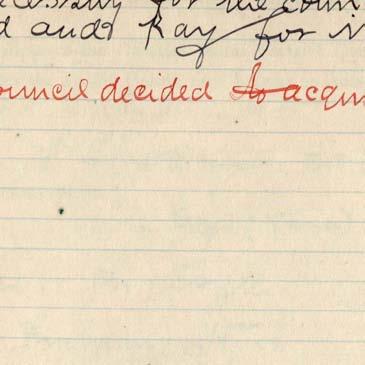 for the coun
d and pay for
ouncil decided to acqu